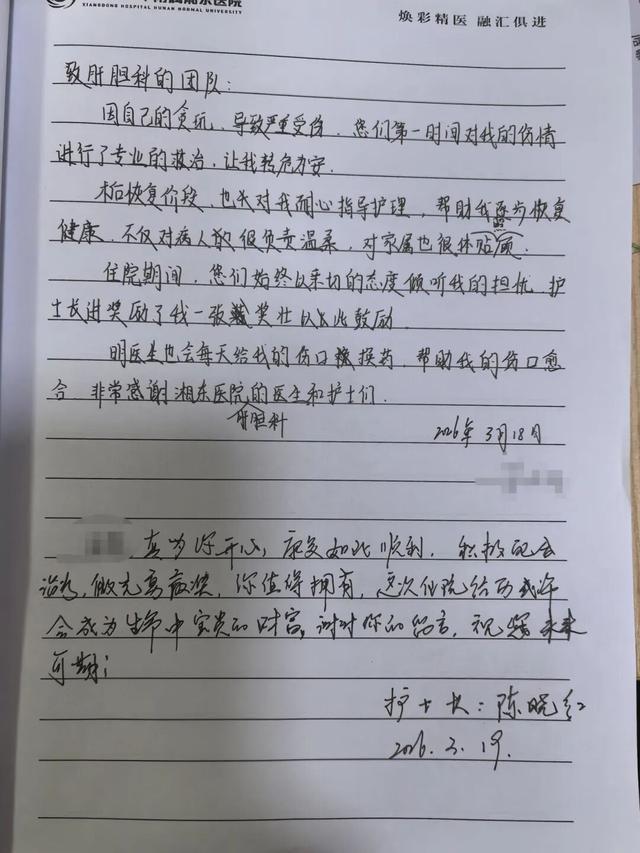 XIANGDONG HOSPITAL HUNAN NORMAL UNIVERSITY
焕彩精医 融汇俱进
致肝胆科的团队：
因自己的贪玩，导致严重受伤，您们第一时间对我的伤情
进行了专业的救治，让我转危为安．
术后恢复阶段，也长对我耐心指导护理，帮助我逐步恢复
健康，不仅对病人很负责温柔，对家属也很体贴
住院期间，您们始终以亲切的态度倾听我的担忧，护
士长进奖励了我一张奖壮以此鼓励．
明医生也会每天给我的伤口换药，帮助我的伤口愈
合．非常感谢湘东医院的医生和护士们．
肝胆科
2026年3月18日
真为你开心，康复如此顺利，积极配合
治疗，你值得拥有，这次住院经历或许
会成为生命中宝贵的财富。谢谢你的留言，祝未来
可期；
护士长：陈晓红
2026.3.19.